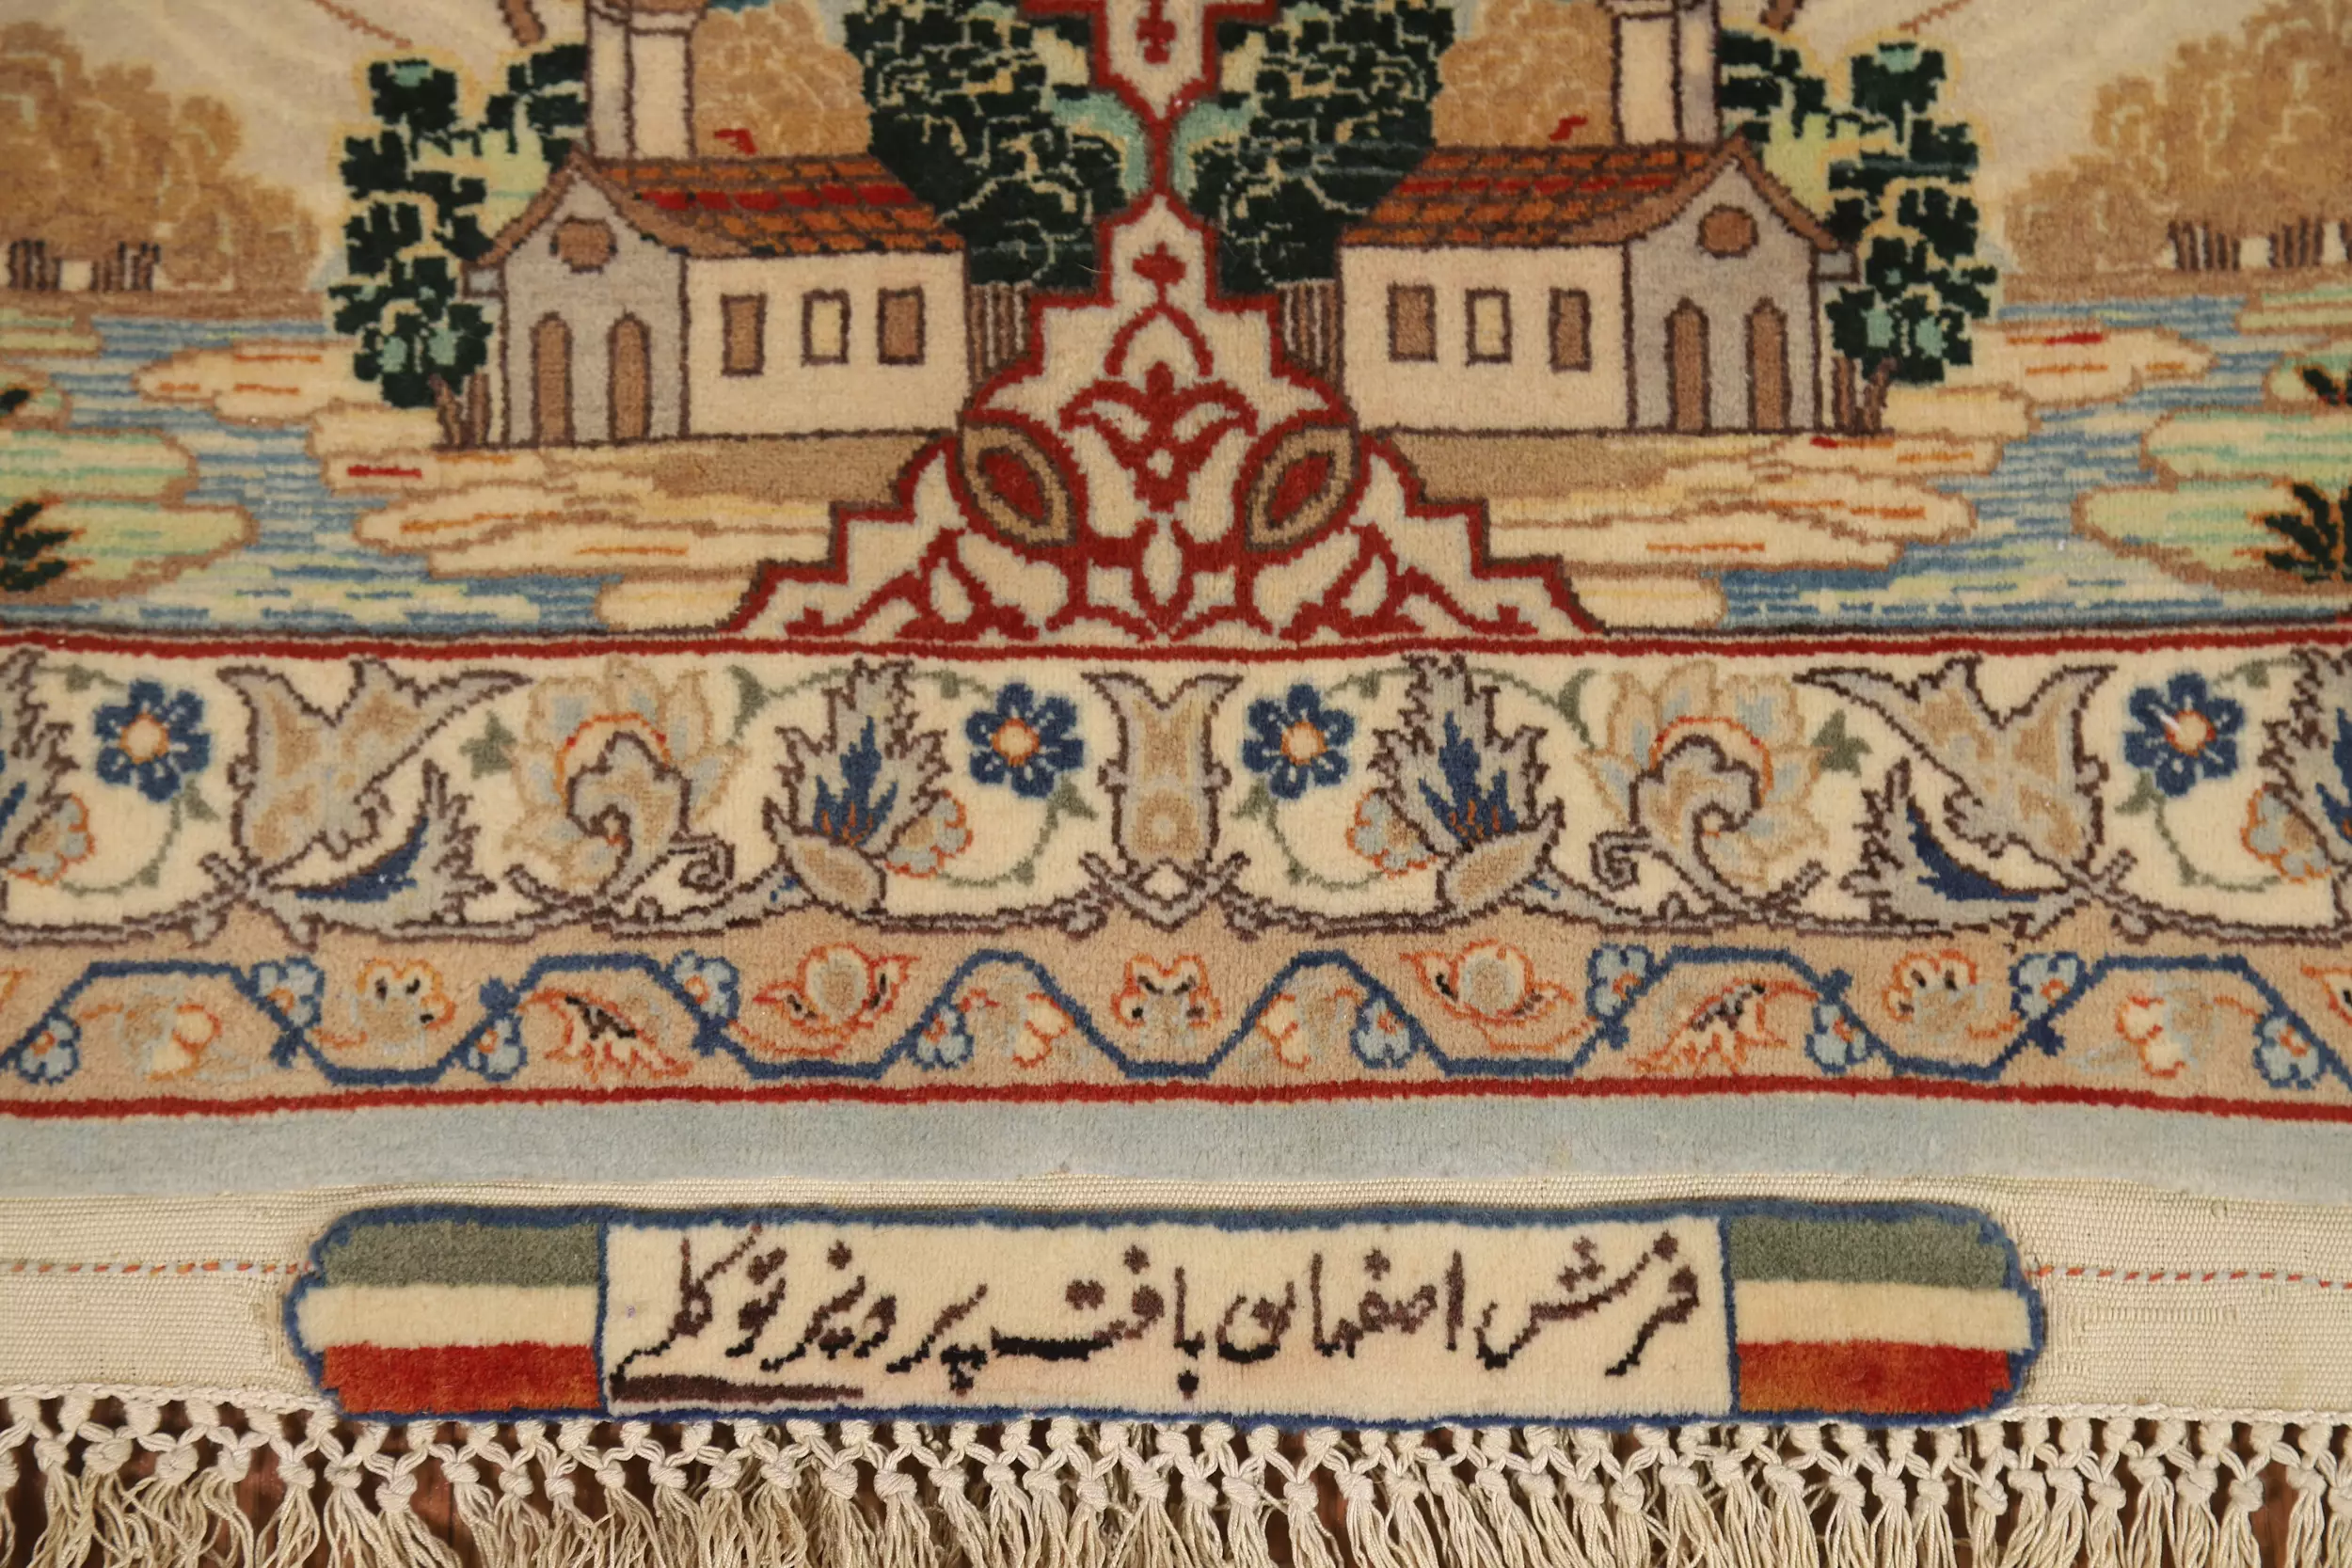 فرش اصفهان بافت پرویز توکلی